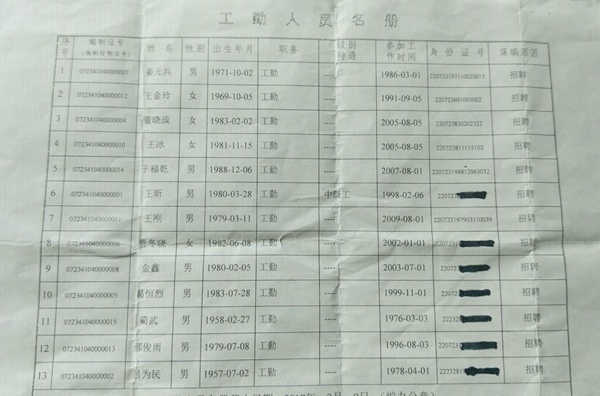 工勤人员名册
序号 编制证号 姓名 性别 出生年月 职务 级别待遇 参加工作时间 身份证号 落编原因
1 072341040000007 姜元兵 男 1971-10-02 工勤 ---- 1986-03-01 招聘
2 072341040000012 王金玲 女 1969-10-05 工勤 ---- 1991-09-05 招聘
3 072341040000004 董晓琰 女 1983-02-02 工勤 ---- 2005-08-05 220723830202122 招聘
4 072341040000010 王冰 女 1981-11-15 工勤 ---- 2005-08-05 220723811115102 招聘
5 072341040000014 于福乾 男 1988-12-06 工勤 ---- 2007-08-01 220723198812063032 招聘
6 072341040000001 王昕 男 1980-03-28 工勤 中级工 1998-02-06 220723 招聘
7 072341040000011 王刚 男 1979-03-11 工勤 ---- 2009-08-01 220723197903110039 招聘
8 072341040000006 冬晓 女 1982-06-08 工勤 ---- 2002-01-01 220723 招聘
9 072341040000008 金鑫 男 1980-02-05 工勤 ---- 2003-07-01 220723 招聘
10 072341040000005 葛恒烈 男 1983-07-28 工勤 ---- 1999-11-01 22072 招聘
11 072341040000015 蔺武 男 1958-02-27 工勤 ---- 1976-03-03 22232 招聘
12 072341040000013 邢俊雨 男 1979-07-08 工勤 ---- 1996-08-03 22072 招聘
13 072341040000002 吕为民 男 1957-07-02 工勤 ---- 1978-04-01 2223281 招聘